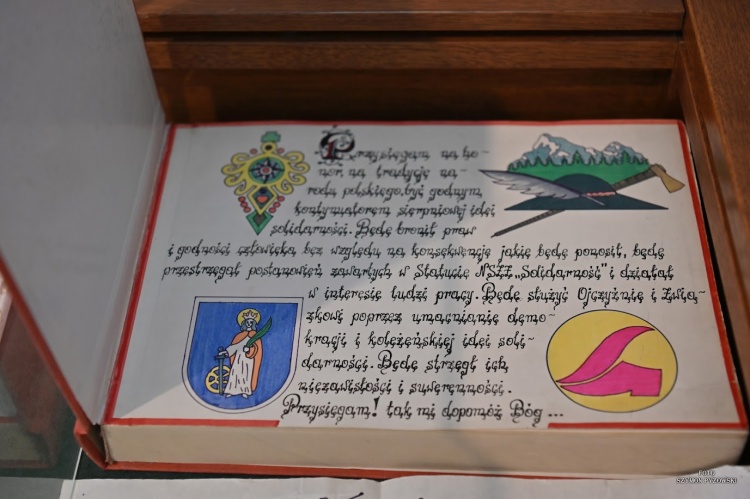 Przysięgam na ho-
nor, na tradycję na-
rodu polskiego, być godnym
kontynuatorem sierpniowej idei
solidarności. Będę bronił praw
i godności człowieka bez względu na konsekwencje jakie będę ponosił, będę
przestrzegał postanowień zawartych w Statucie NSZZ „Solidarność" i działał
w interesie ludzi pracy. Będę służyć Ojczyźnie i Zwią-
zkowi poprzez umacnianie demo-
kracji i koleżeńskiej idei soli-
darności. Będę strzegł ich
niezawisłości i suwerenności.
Przysięgam! tak mi dopomóż Bóg ...
FOTO
SZYMON PYZOWSKI